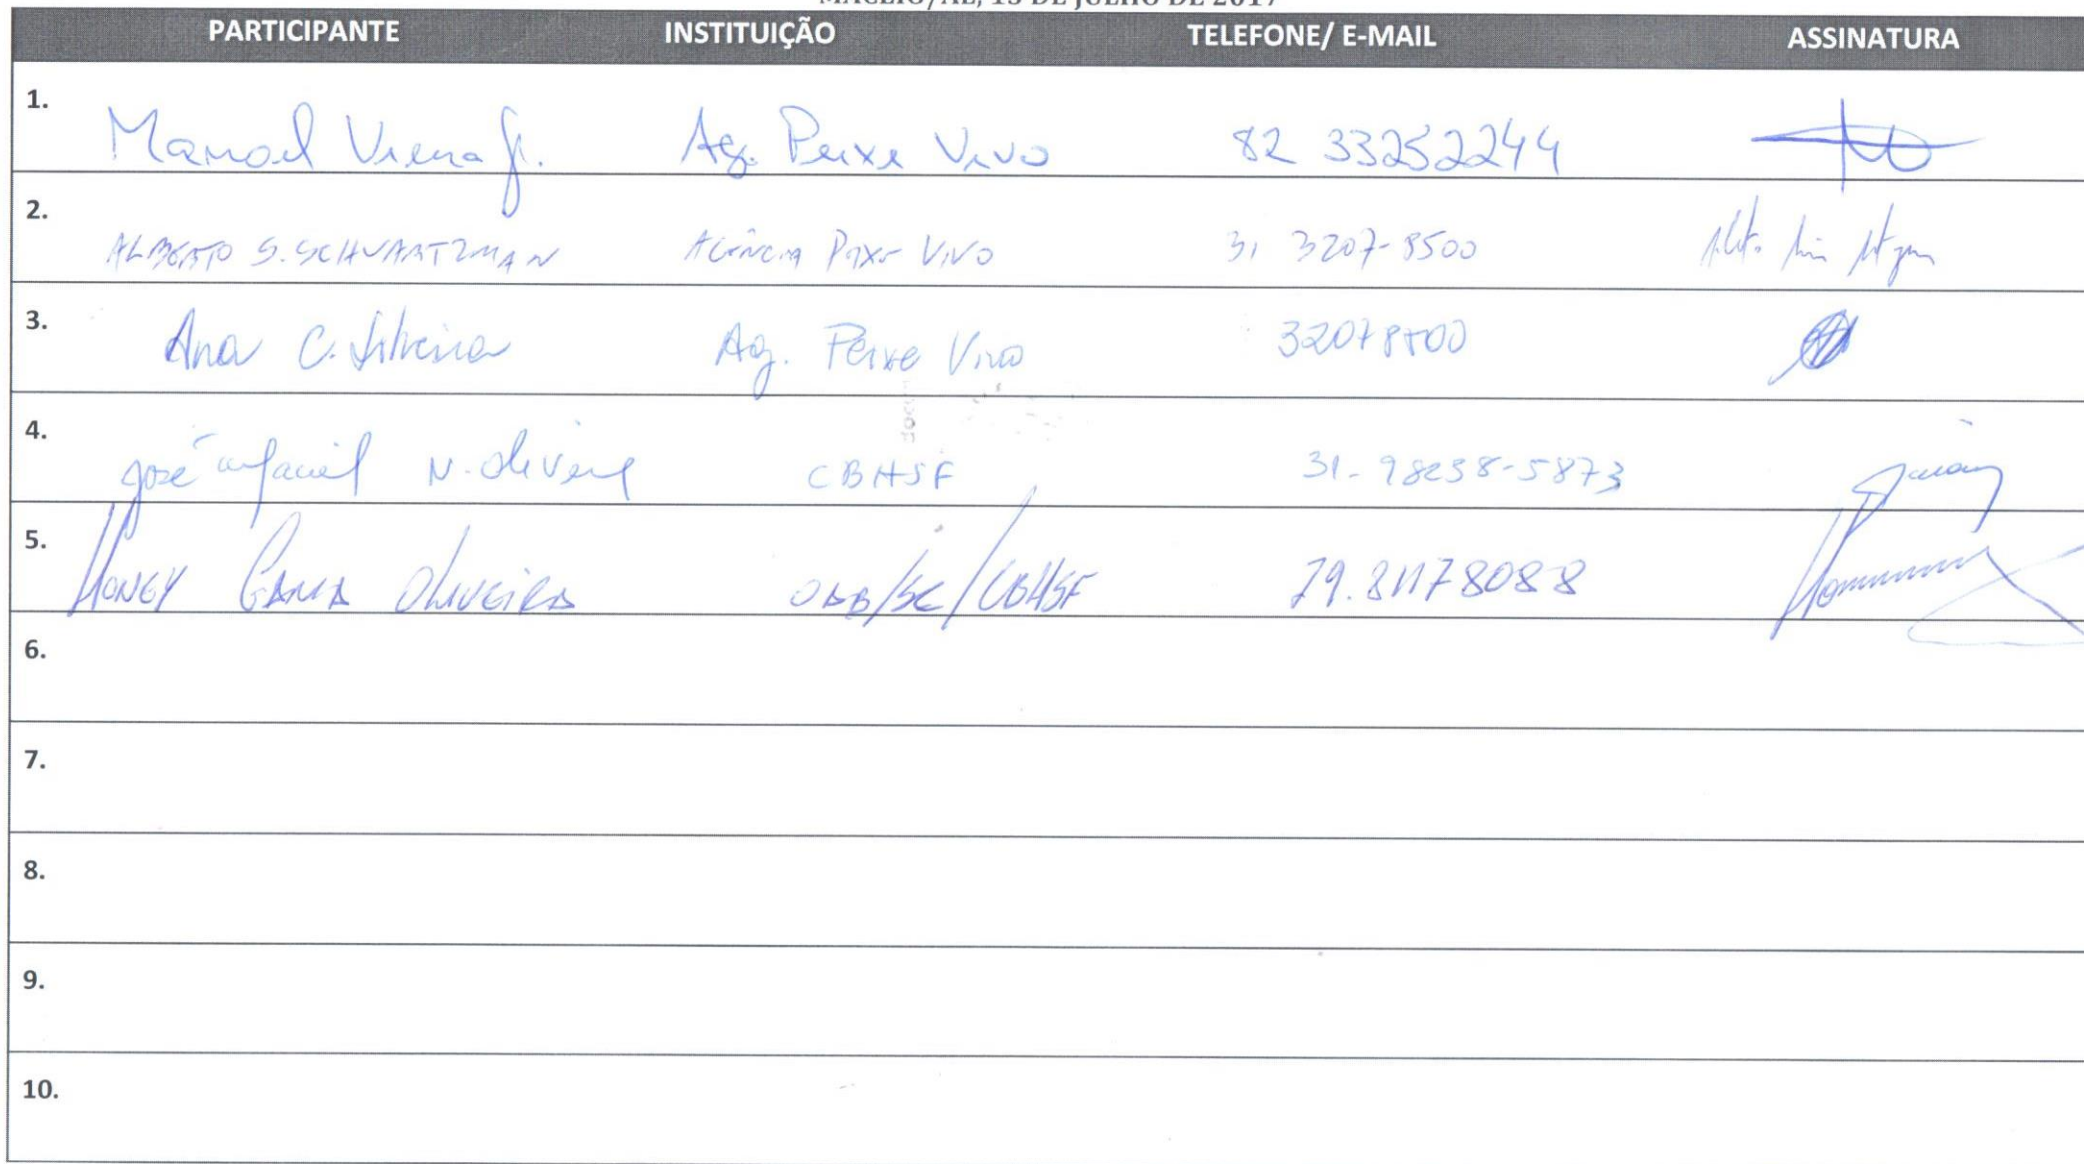 MACEIÓ/AL, 13 DE JULHO DE 2017
PARTICIPANTE INSTITUIÇÃO TELEFONE/ E-MAIL ASSINATURA
1. Manoel Vieira Jr. Ag. Peixe Vivo 82 33252244
2. ALBERTO S. SCHVARTZMAN AGÊNCIA PEIXE VIVO 31 3207-8500
3. Ana C. Silveira Ag. Peixe Vivo 32078500
4. José N. Oliveira CBHSF 31-98238-5873
5. Honey Gama Oliveira OAB/SE/CBHSF 79.81178088
6.
7.
8.
9.
10.